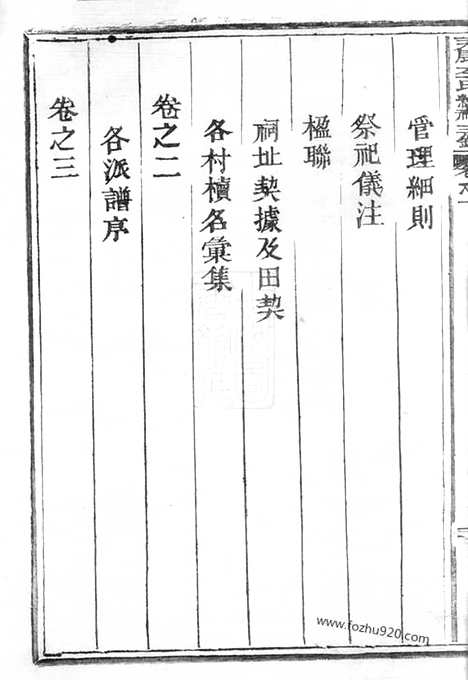 管理細則
祭祀儀注
楹聯
祠址契據及田契
各村檟名彙集
卷之二
各派譜序
卷之三
www.fozhu920.com